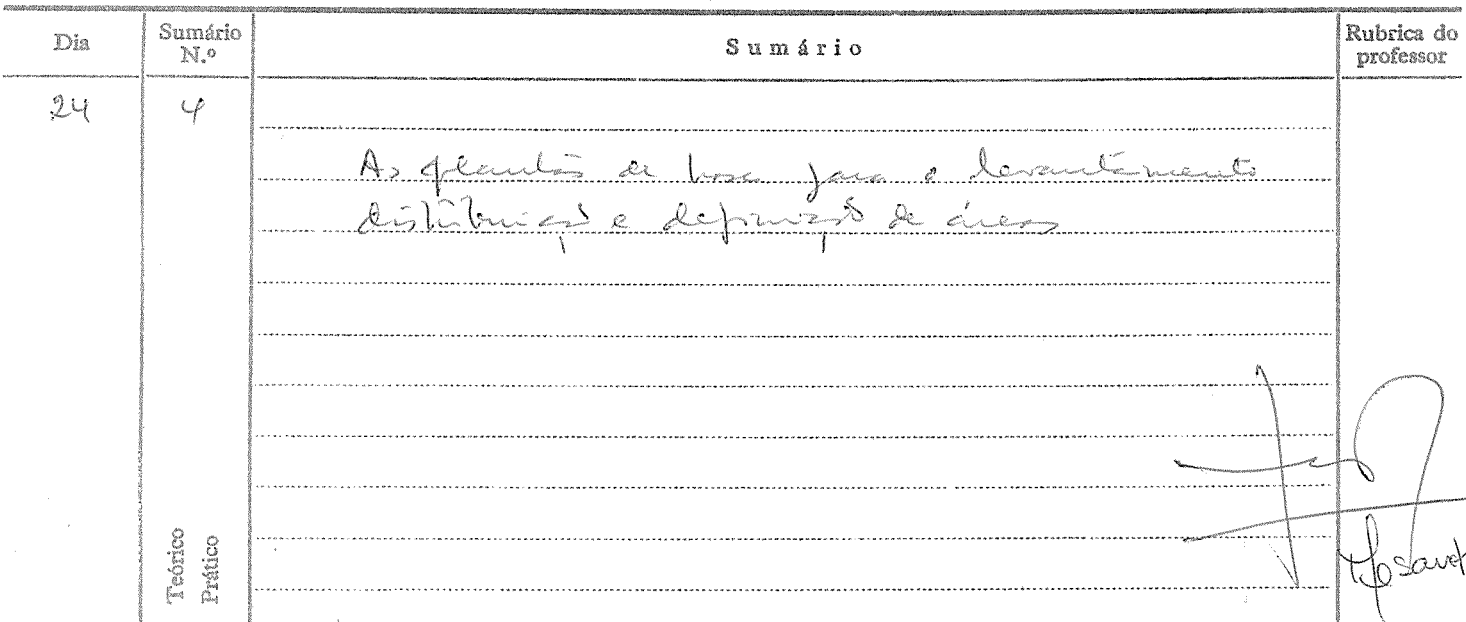 Dia
Sumário N.º
Sumário
Rubrica do professor
24
4
As plantas de base para o levantamento
distribuição e definição de áreas
Teórico
Prático